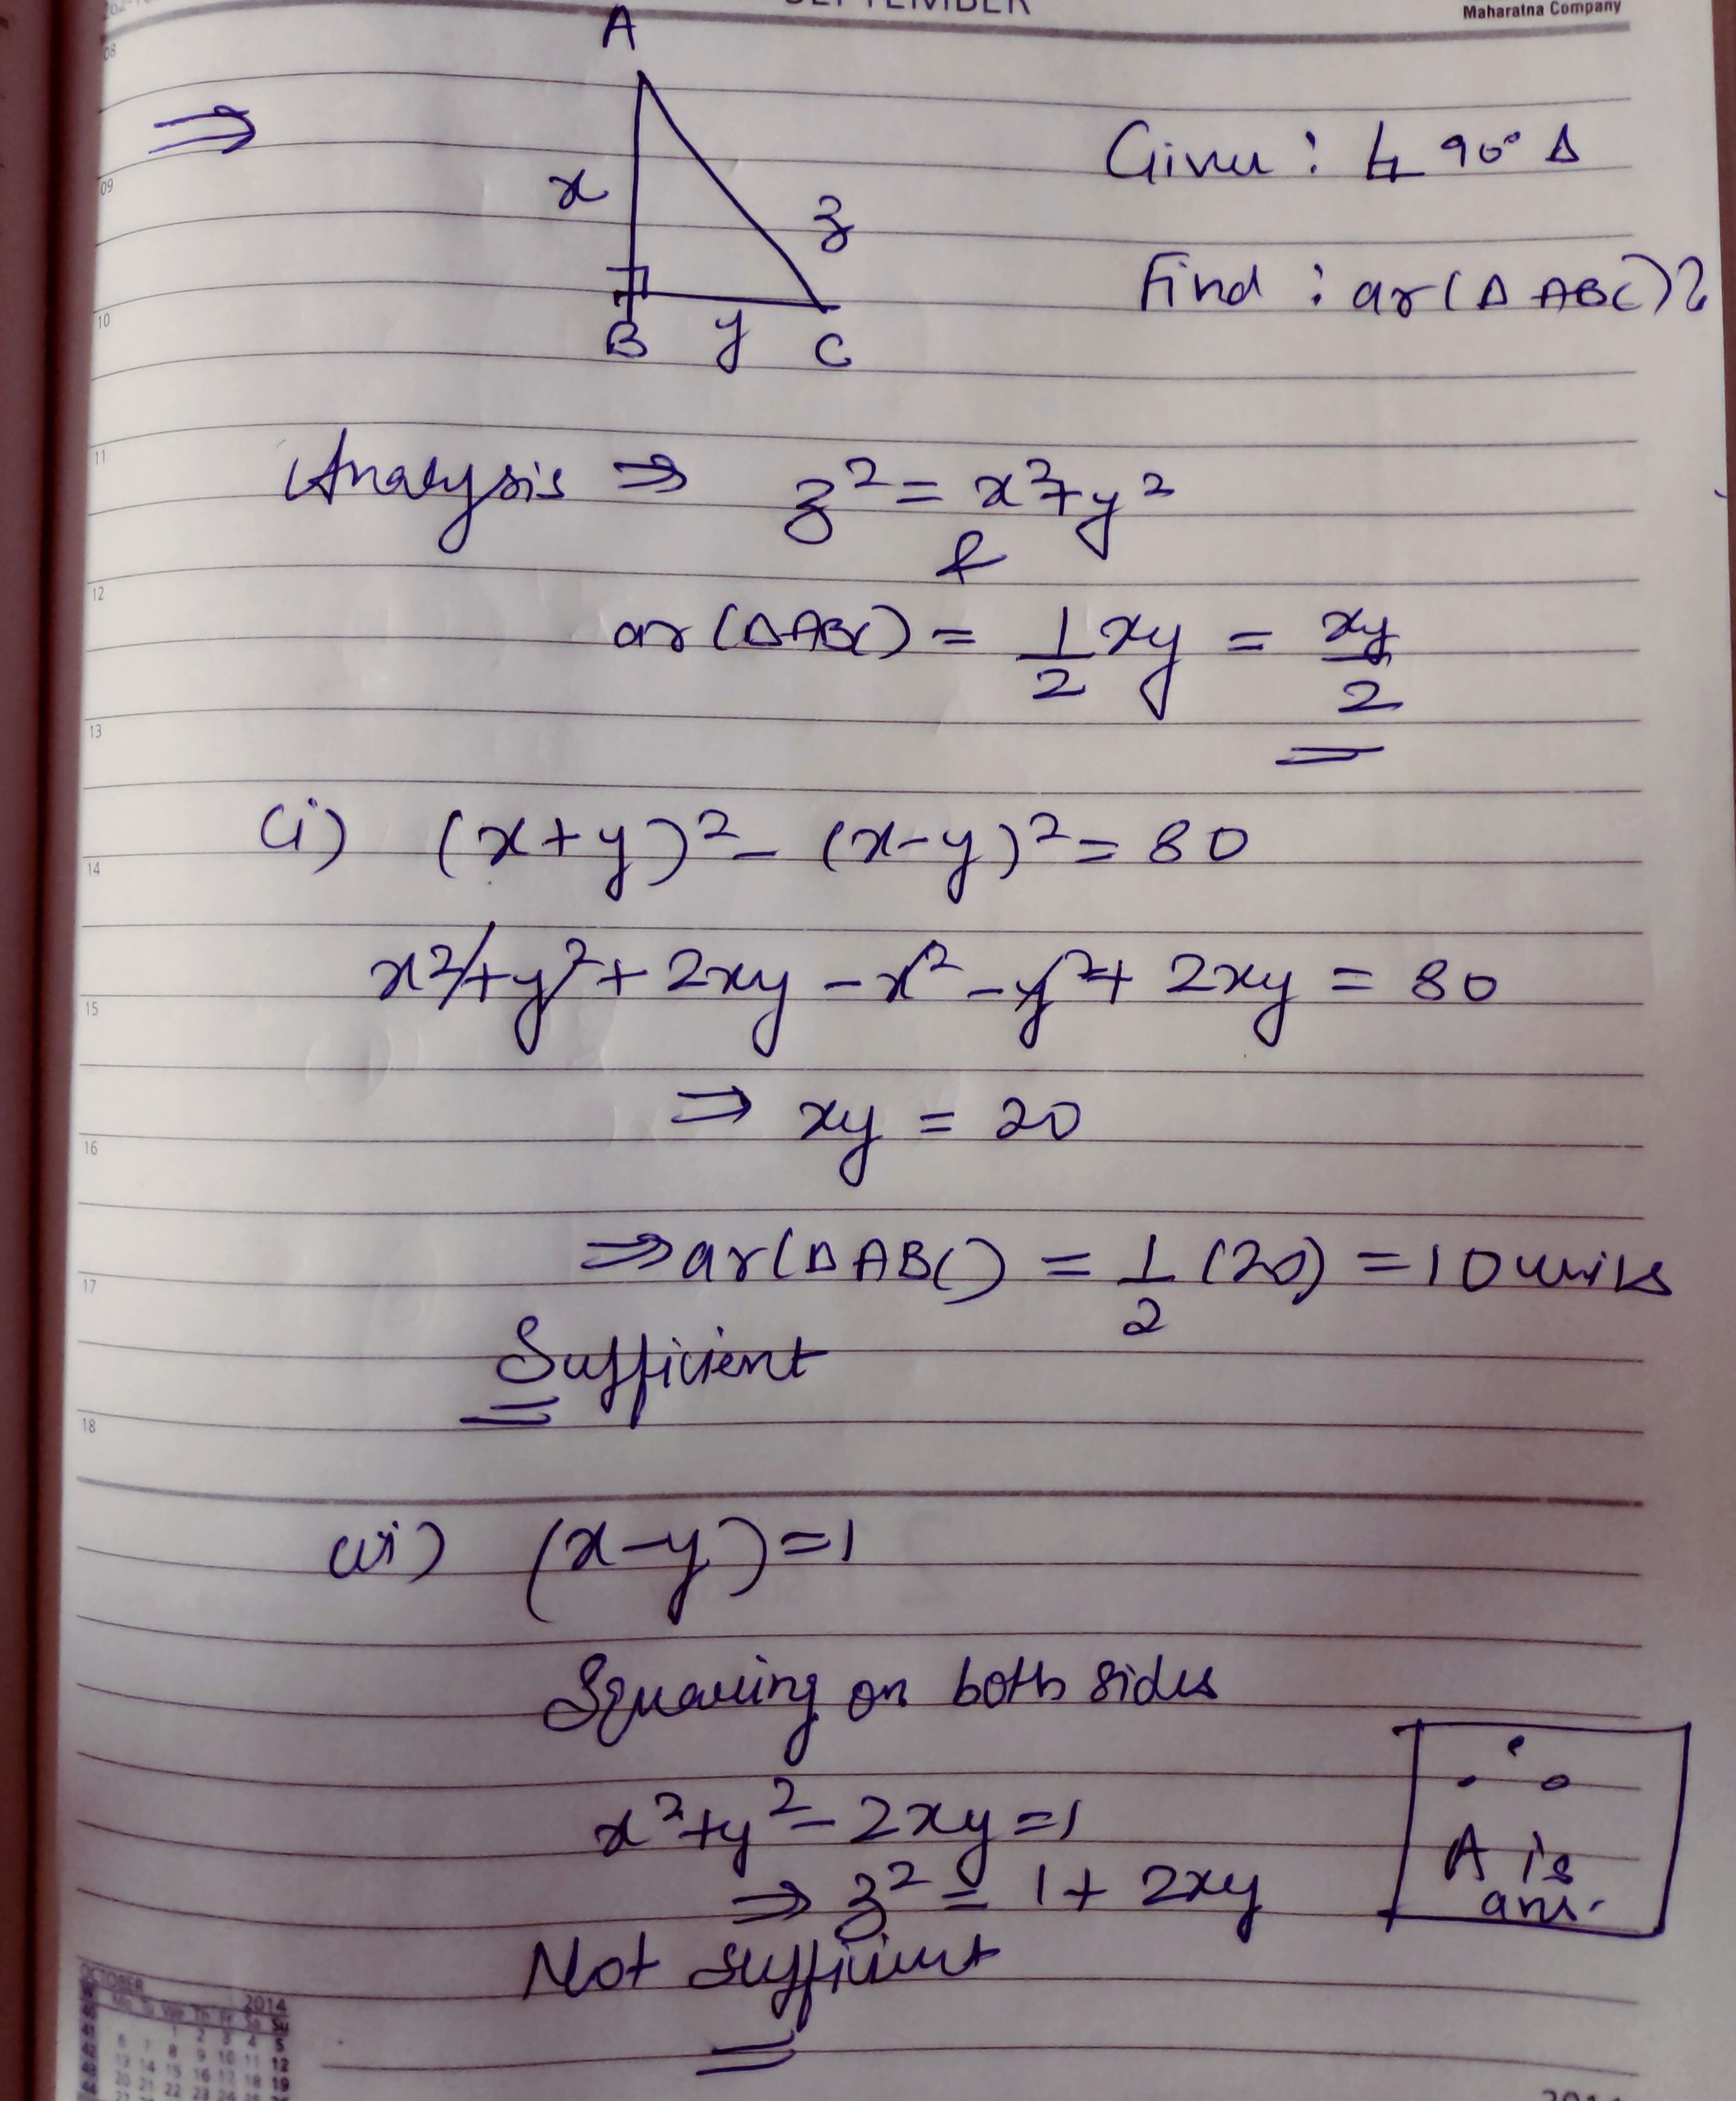 SEPTEMBER
Maharatna Company
A
08
⇒
Given : 90° Δ
09
x
z
Find : ar(Δ ABC)?
10
B y C
11
Analysis ⇒ z² = x²+y²
&
12
ar(ΔABC) = 1/2 xy = xy/2
13
(i) (x+y)² - (x-y)² = 80
14
x²+y²+2xy -x²-y²+ 2xy = 80
15
⇒ xy = 20
16
⇒ ar(ΔABC) = 1/2 (20) = 10 units
17
Sufficient
18
(ii) (x-y)=1
Squaring on both sides
x²+y²-2xy=1
⇒ z² = 1+ 2xy
∴
A is
ans.
Not sufficient
OCTOBER 2014
Mo Tu We Th Fr Sa Su
1 2 3 4 5
6 7 8 9 10 11 12
13 14 15 16 17 18 19
20 21 22 23 24 25 26